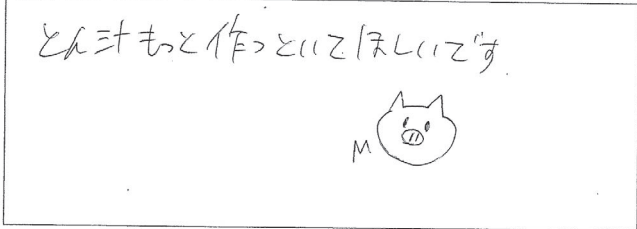 とん汁もっと作っといてほしいです
M